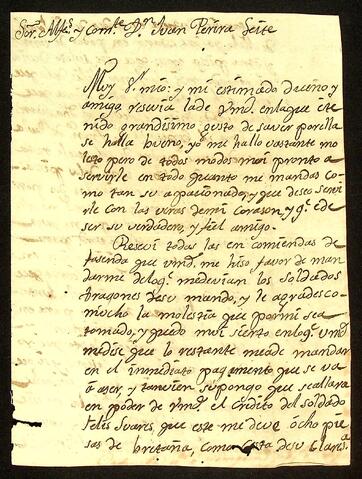 Sor. y Comte. Dn. Juan Perira Leite
Muy Sr. mio: y mi estimado dueño y
amigo, resevi la de Vmd. en la que e te
nido grandisimo gusto de saver por ella
se halla bueno, yo me hallo vastante mo
lesto pero de todos modos mui pronto a
servirle en todo quanto me mandas co
mo tan su apacionado, y que deseo servi
rle con las veras de mi corason, y qe. e de
ser su verdadero, y fiel amigo.
Resevi todas las encomiendas de
fasenda que Vmd. me hiso favor de man
darme de loqe. me devian los soldados
Dragones de su mando, y le agradesco
mucho la molestia que por mi sea
tomado, y quedo mui sierto en loqe. Vmd.
me dise que lo restante me a de mandar
en el immediato pagamento que se va
a aser, y tanvien supongo que se allara
en poder de Vmd. el crédito del soldado
Felis Suares, que este me deve ócho pie
sas de bretaña, como costa de su